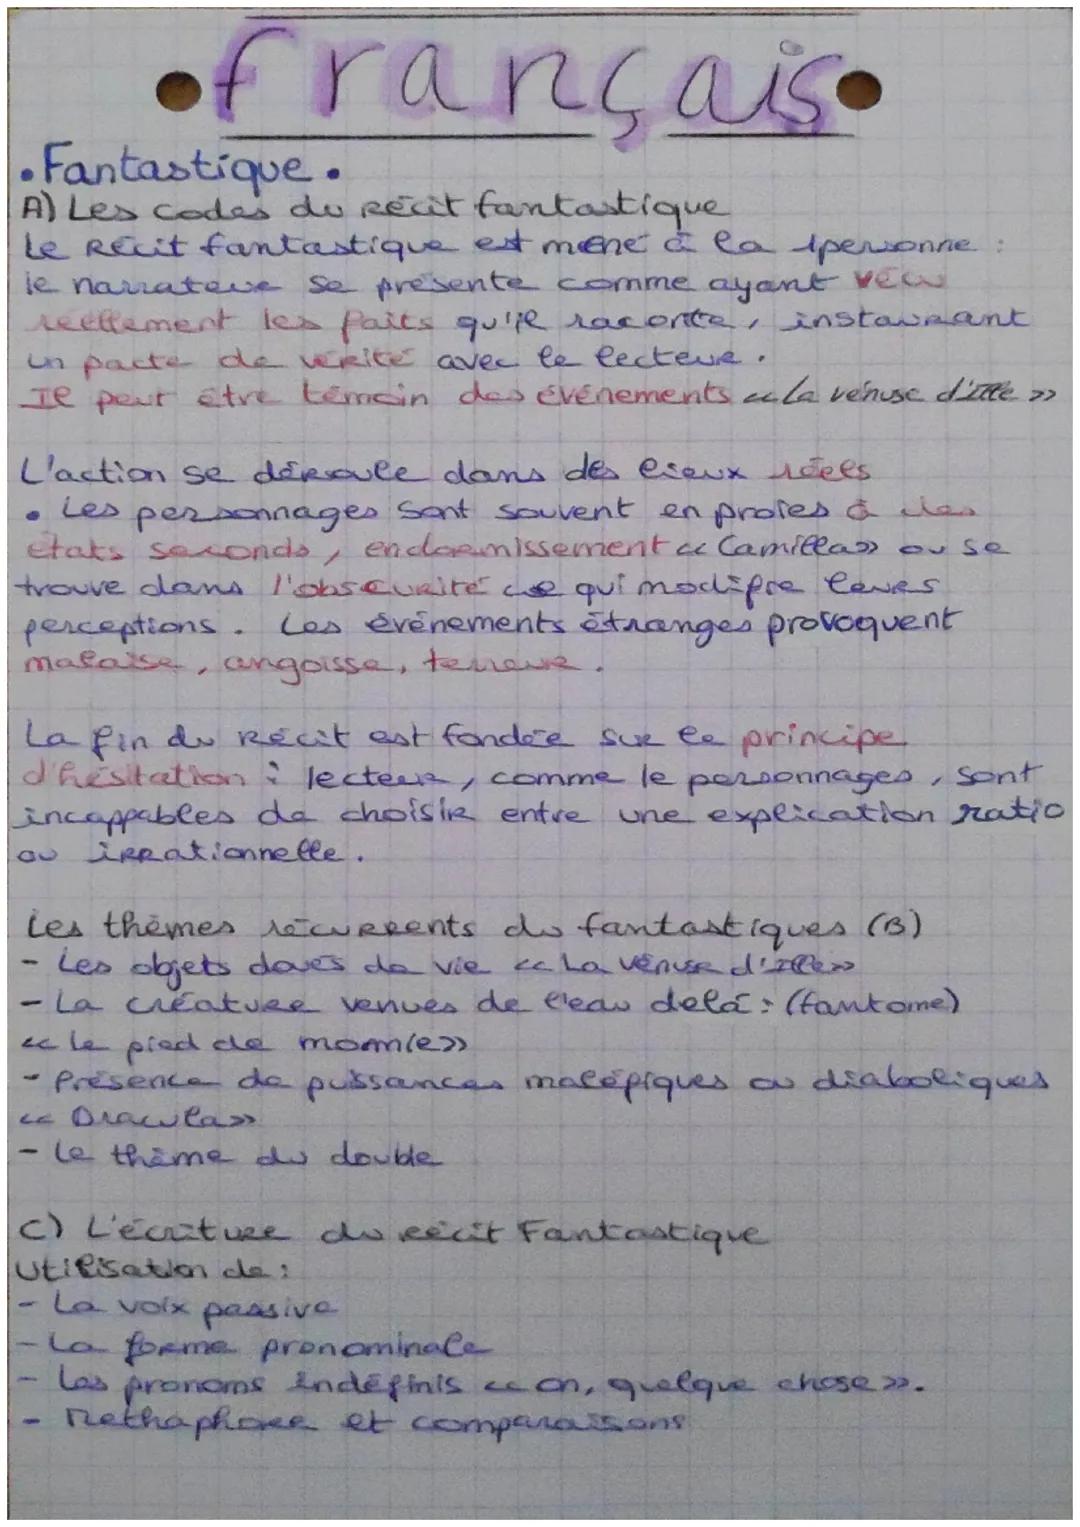 • français •
• Fantastique •
A) Les codes du récit fantastique
Le récit fantastique est mené à la 1personne :
le narrateur se présente comme ayant vécu
réellement les faits qu'il raconte, instaurant
un pacte de vérité avec le lecteur.
Il peut être témoin des événements « La vénuse d'Ille »
L'action se déroule dans des lieux réels
• Les personnages sont souvent en proies à des
états seconds, endormissement « Camilla » ou se
trouve dans l'obscurité ce qui modifie leurs
perceptions. Les événements étranges provoquent
malaise, angoisse, terreur.
La fin du récit est fondée sur le principe
d'hésitation : lecteur, comme le personnages, sont
incappables de choisir entre une explication ratio
ou irrationnelle.
Les thèmes récurrents du fantastiques (B)
- Les objets doués de vie « La Vénuse d'Ille »
- La créature venues de l'eau delà : (fantome)
« le pied de momie »
- Présence de puissances maléfiques ou diaboliques
« Dracula »
- le thème du double
C) L'écriture du récit Fantastique
Utilisation de :
- La voix passive
- La forme pronominale
- Les pronoms indéfinis « on, quelque chose ».
- Méthaphore et comparaisons